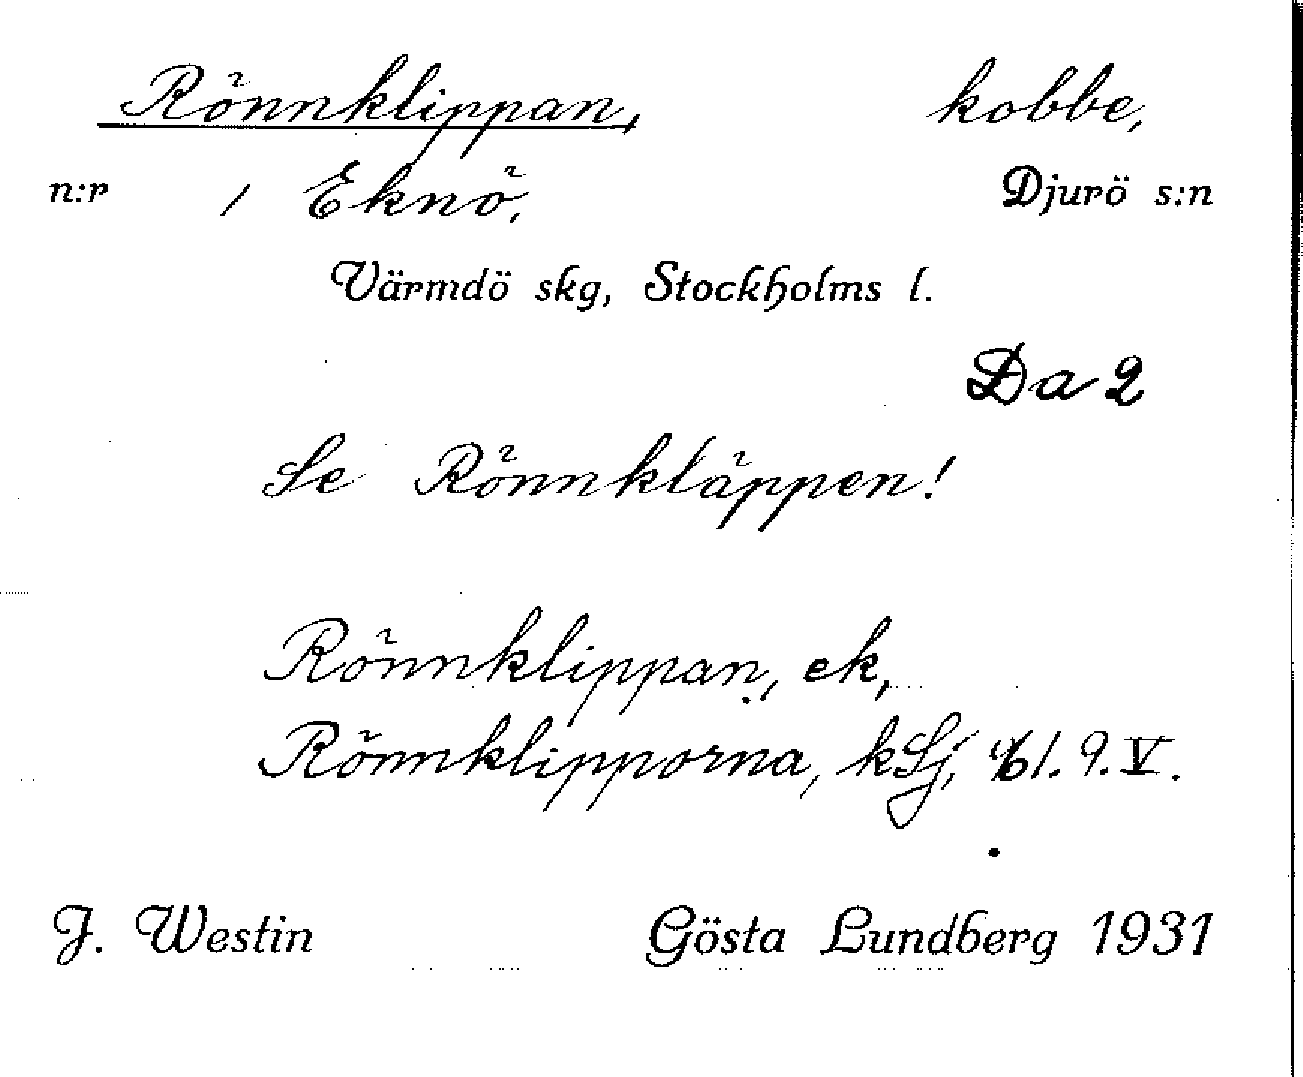 Rönnklippan, kobbe,
n:r / Eknö, Djurö s:n
Värmdö skg, Stockholms l.
Da 2
Se Rönnkläppen!
Rönnklippan, ek,
Rönnklipporna, kSj, 61. 9. V.
J. Westin Gösta Lundberg 1931